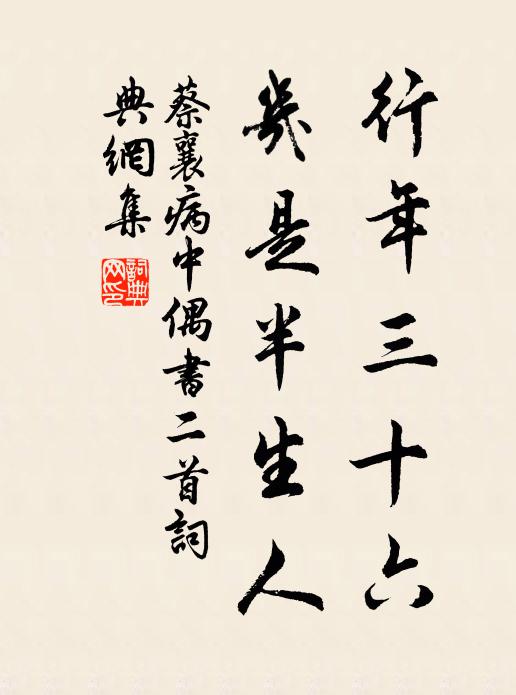 行年三十六
幾是半生人
蔡襄病中偶書二首詞
典網集
詞典
网印